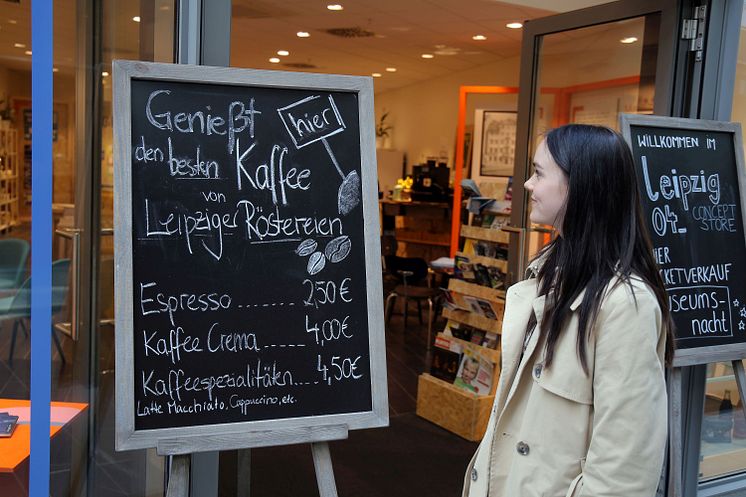 Genießt
hier
den besten
Kaffee
von
Leipziger Röstereien
Espresso ........ 2,50€
Kaffee Crema ...... 4,00€
Kaffeespezialitäten ..... 4,50€
Latte Macchiato, Cappuccino, etc.
WILLKOMMEN IM
Leipzig
04_ CONCEPT
STORE